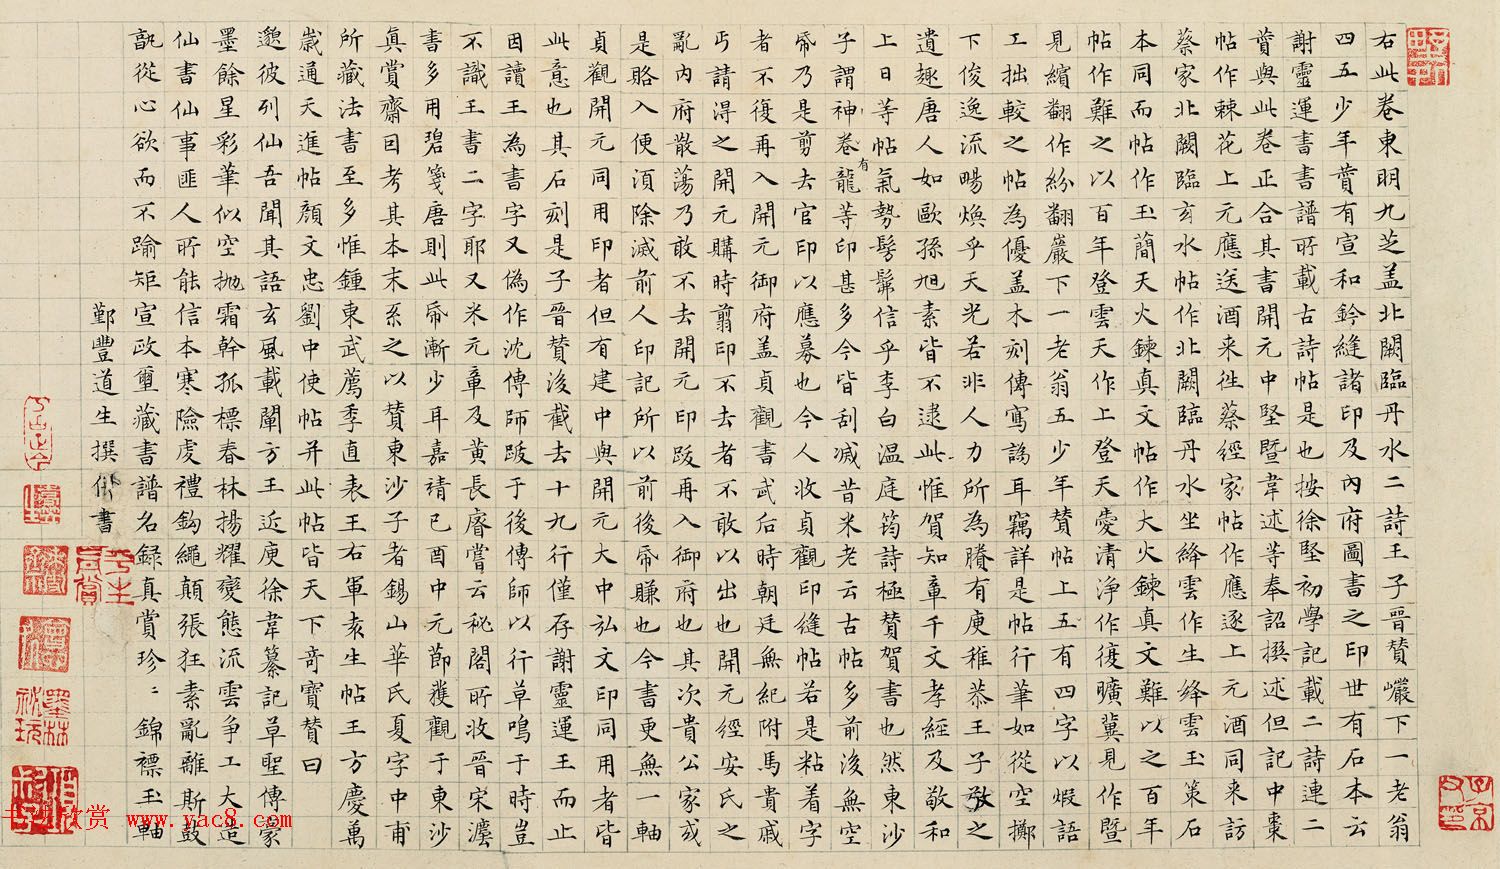 右此卷東明九芝盖北闕臨丹水二詩王子晉贊巗下一老翁
四五少年贊有宣和鈐縫諸印及內府圖書之印世有石本云
謝靈運書書譜所載古詩帖是也按徐堅初學記載二詩連二
贊與此卷正合其書開元中堅暨韋述等奉詔撰述但記中棗
帖作棘花上元應送酒来徃蔡經家帖作應逐上元酒同来訪
蔡家北闕臨玄水帖作北闕臨丹水坐絳雲作生絳雲玉策石
本同而帖作玉簡天火鍊真文帖作大火鍊真文難以之百年
帖作難之以百年登雲天作上登天愛清淨作復曠冀見作暨
見繽翻作紛翻巖下一老翁五少年贊帖上五有四字以煆語
工拙較之帖為優盖木刻傳寫譌耳竊詳是帖行筆如從空擲
下俊逸流暢煥乎天光若非人力所為騰有庾稚恭王子敬之
遺趣唐人如歐孫旭素皆不逮此惟賀知章千文孝經及敬和
上日等帖氣勢髣髴信乎李白温庭筠詩極贊賀書也然東沙
子謂神卷有龍等印甚多今皆刮滅昔米老云古帖多前後無空
帋乃是剪去官印以應募也今人收貞觀印縫帖若是粘着字
者不復再入開元御府盖貞觀書武后時朝廷無紀附馬貴戚
丐請得之開元購時剪印不去者不敢以出也開元經安氏之
亂內府散蕩乃敢不去開元印跋再入御府也其次貴公家或
是賂入便湏除滅前人印記所以前後帋賺也今書更無一軸
貞觀開元同用印者但有建中與開元大中弘文印同用者皆
此意也其石刻是子晉贊後截去十九行僅存謝靈運王而止
因讀王為書字又偽作沈傳師跋于後傳師以行草鳴于時豈
不識王書二字耶又米元章及黃長睿嘗云秘閣所收晉宋灋
書多用碧箋唐則此帋漸少耳嘉靖己酉中元節獲觀于東沙
真賞齋因考其本末系之以贊東沙子者錫山華氏夏字中甫
所藏法書至多惟鍾東武薦季直表王右軍袁生帖王方慶萬
歲通天進帖顏文忠劉中使帖并此帖皆天下奇寶贊曰
邈彼列仙吾聞其語玄風載闡方王近庾徐韋纂記草聖傳豪
墨餘星彩筆似空抛霜幹孤標春林揚耀變態流雲爭工大造
仙書仙事匪人所能信本寒險虔禮鈎繩顛張狂素亂雜斯鼓
翫從心欲而不踰矩宣政璽藏書譜名録真賞珍〻錦褾玉軸
鄞豐道生撰併書
平生真賞
墨林祕玩
书法欣赏 www.yac8.com